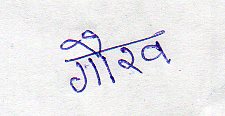 गौरव